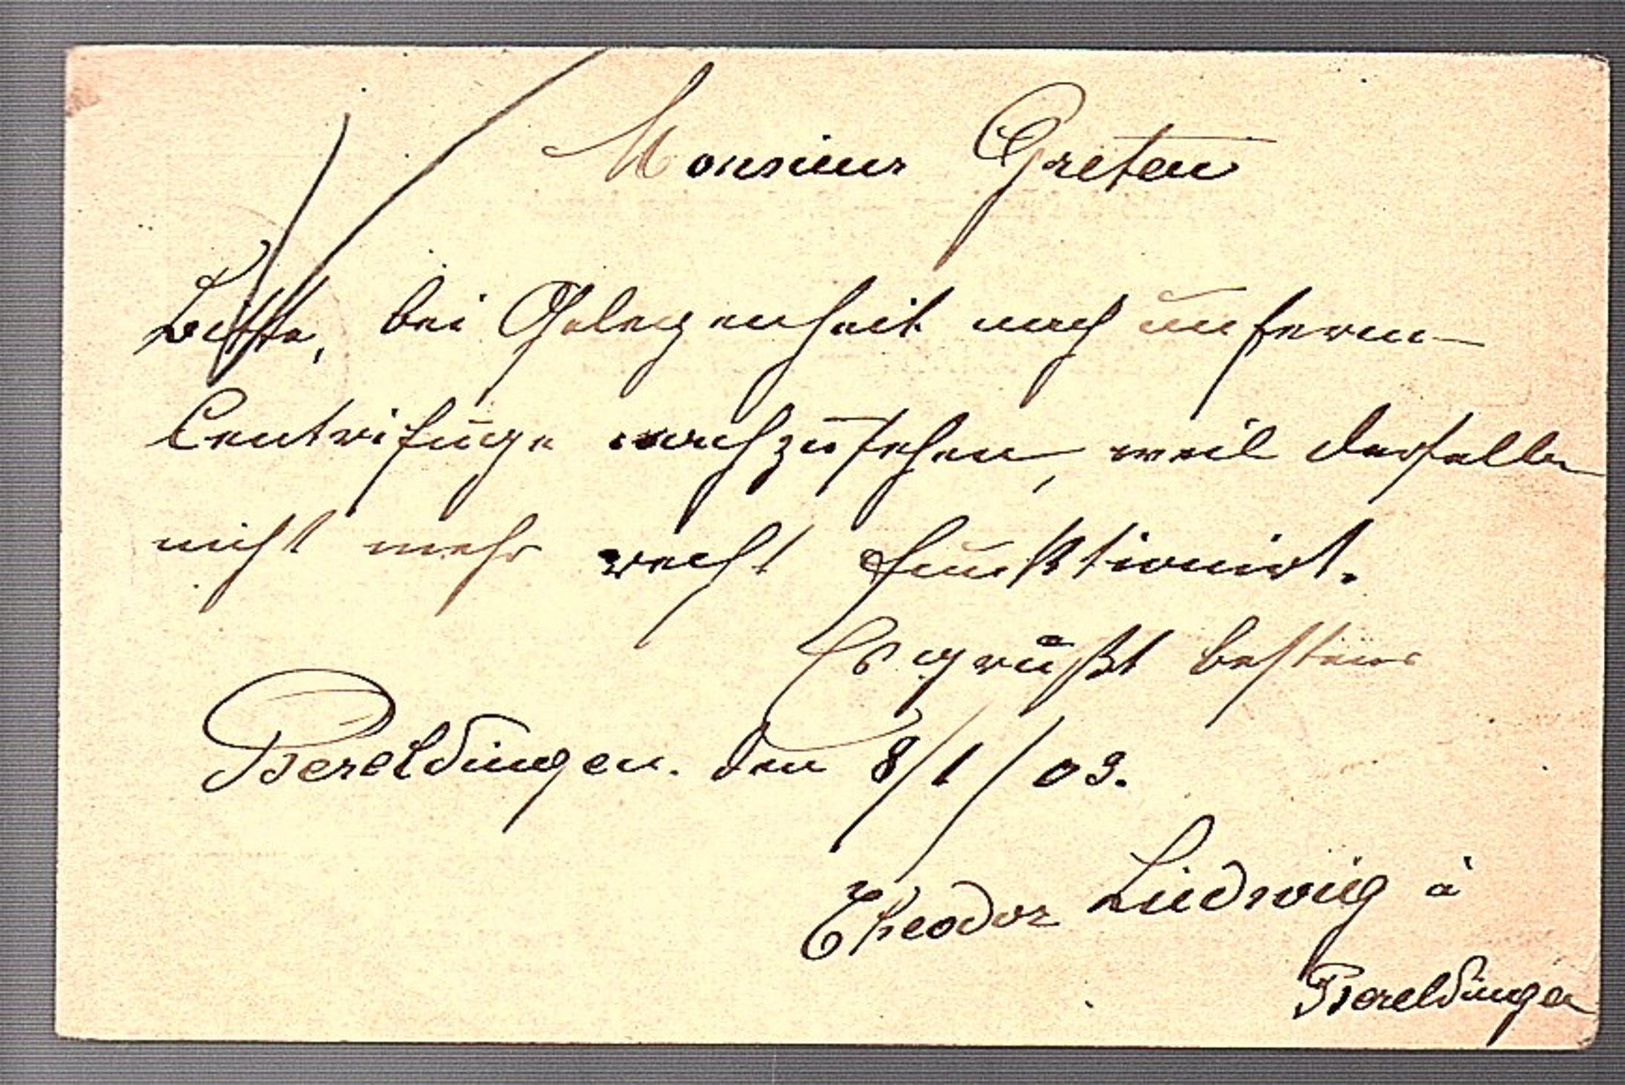 Monsieur Greten
Bitte, bei Gelegenheit nach unserm
Centrifuge nachzusehen, weil derselbe
nicht mehr recht funktionirt.
Es grüßt bestens
Bereldingen. den 8/1/03.
Theodor Ludwig à
Bereldingen